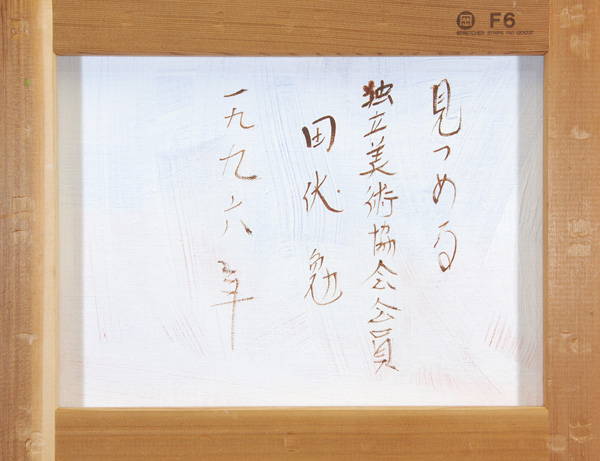 見つめる
独立美術協会会員
田伏勉
一九九六年
岡 F6